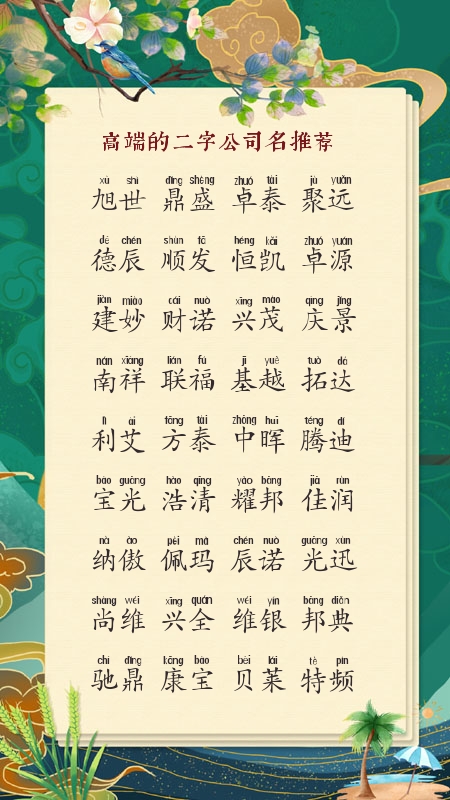 高端的二字公司名推荐
xù shì dǐng shèng zhuó tài jù yuǎn
旭世 鼎盛 卓泰 聚远
dé chén shùn fā héng kǎi zhuó yuán
德辰 顺发 恒凯 卓源
jiàn miào cái nuò xīng mào qìng jǐng
建妙 财诺 兴茂 庆景
nán xiáng lián fú jī yuè tuò dá
南祥 联福 基越 拓达
lì ài fāng tài zhōng huī téng dí
利艾 方泰 中晖 腾迪
bǎo guāng hào qīng yào bāng jiā rùn
宝光 浩清 耀邦 佳润
nà ào pèi mǎ chén nuò guāng xùn
纳傲 佩玛 辰诺 光迅
shàng wéi xīng quán wéi yín bāng diǎn
尚维 兴全 维银 邦典
chí dǐng kāng bǎo bèi lái tè pín
驰鼎 康宝 贝莱 特频